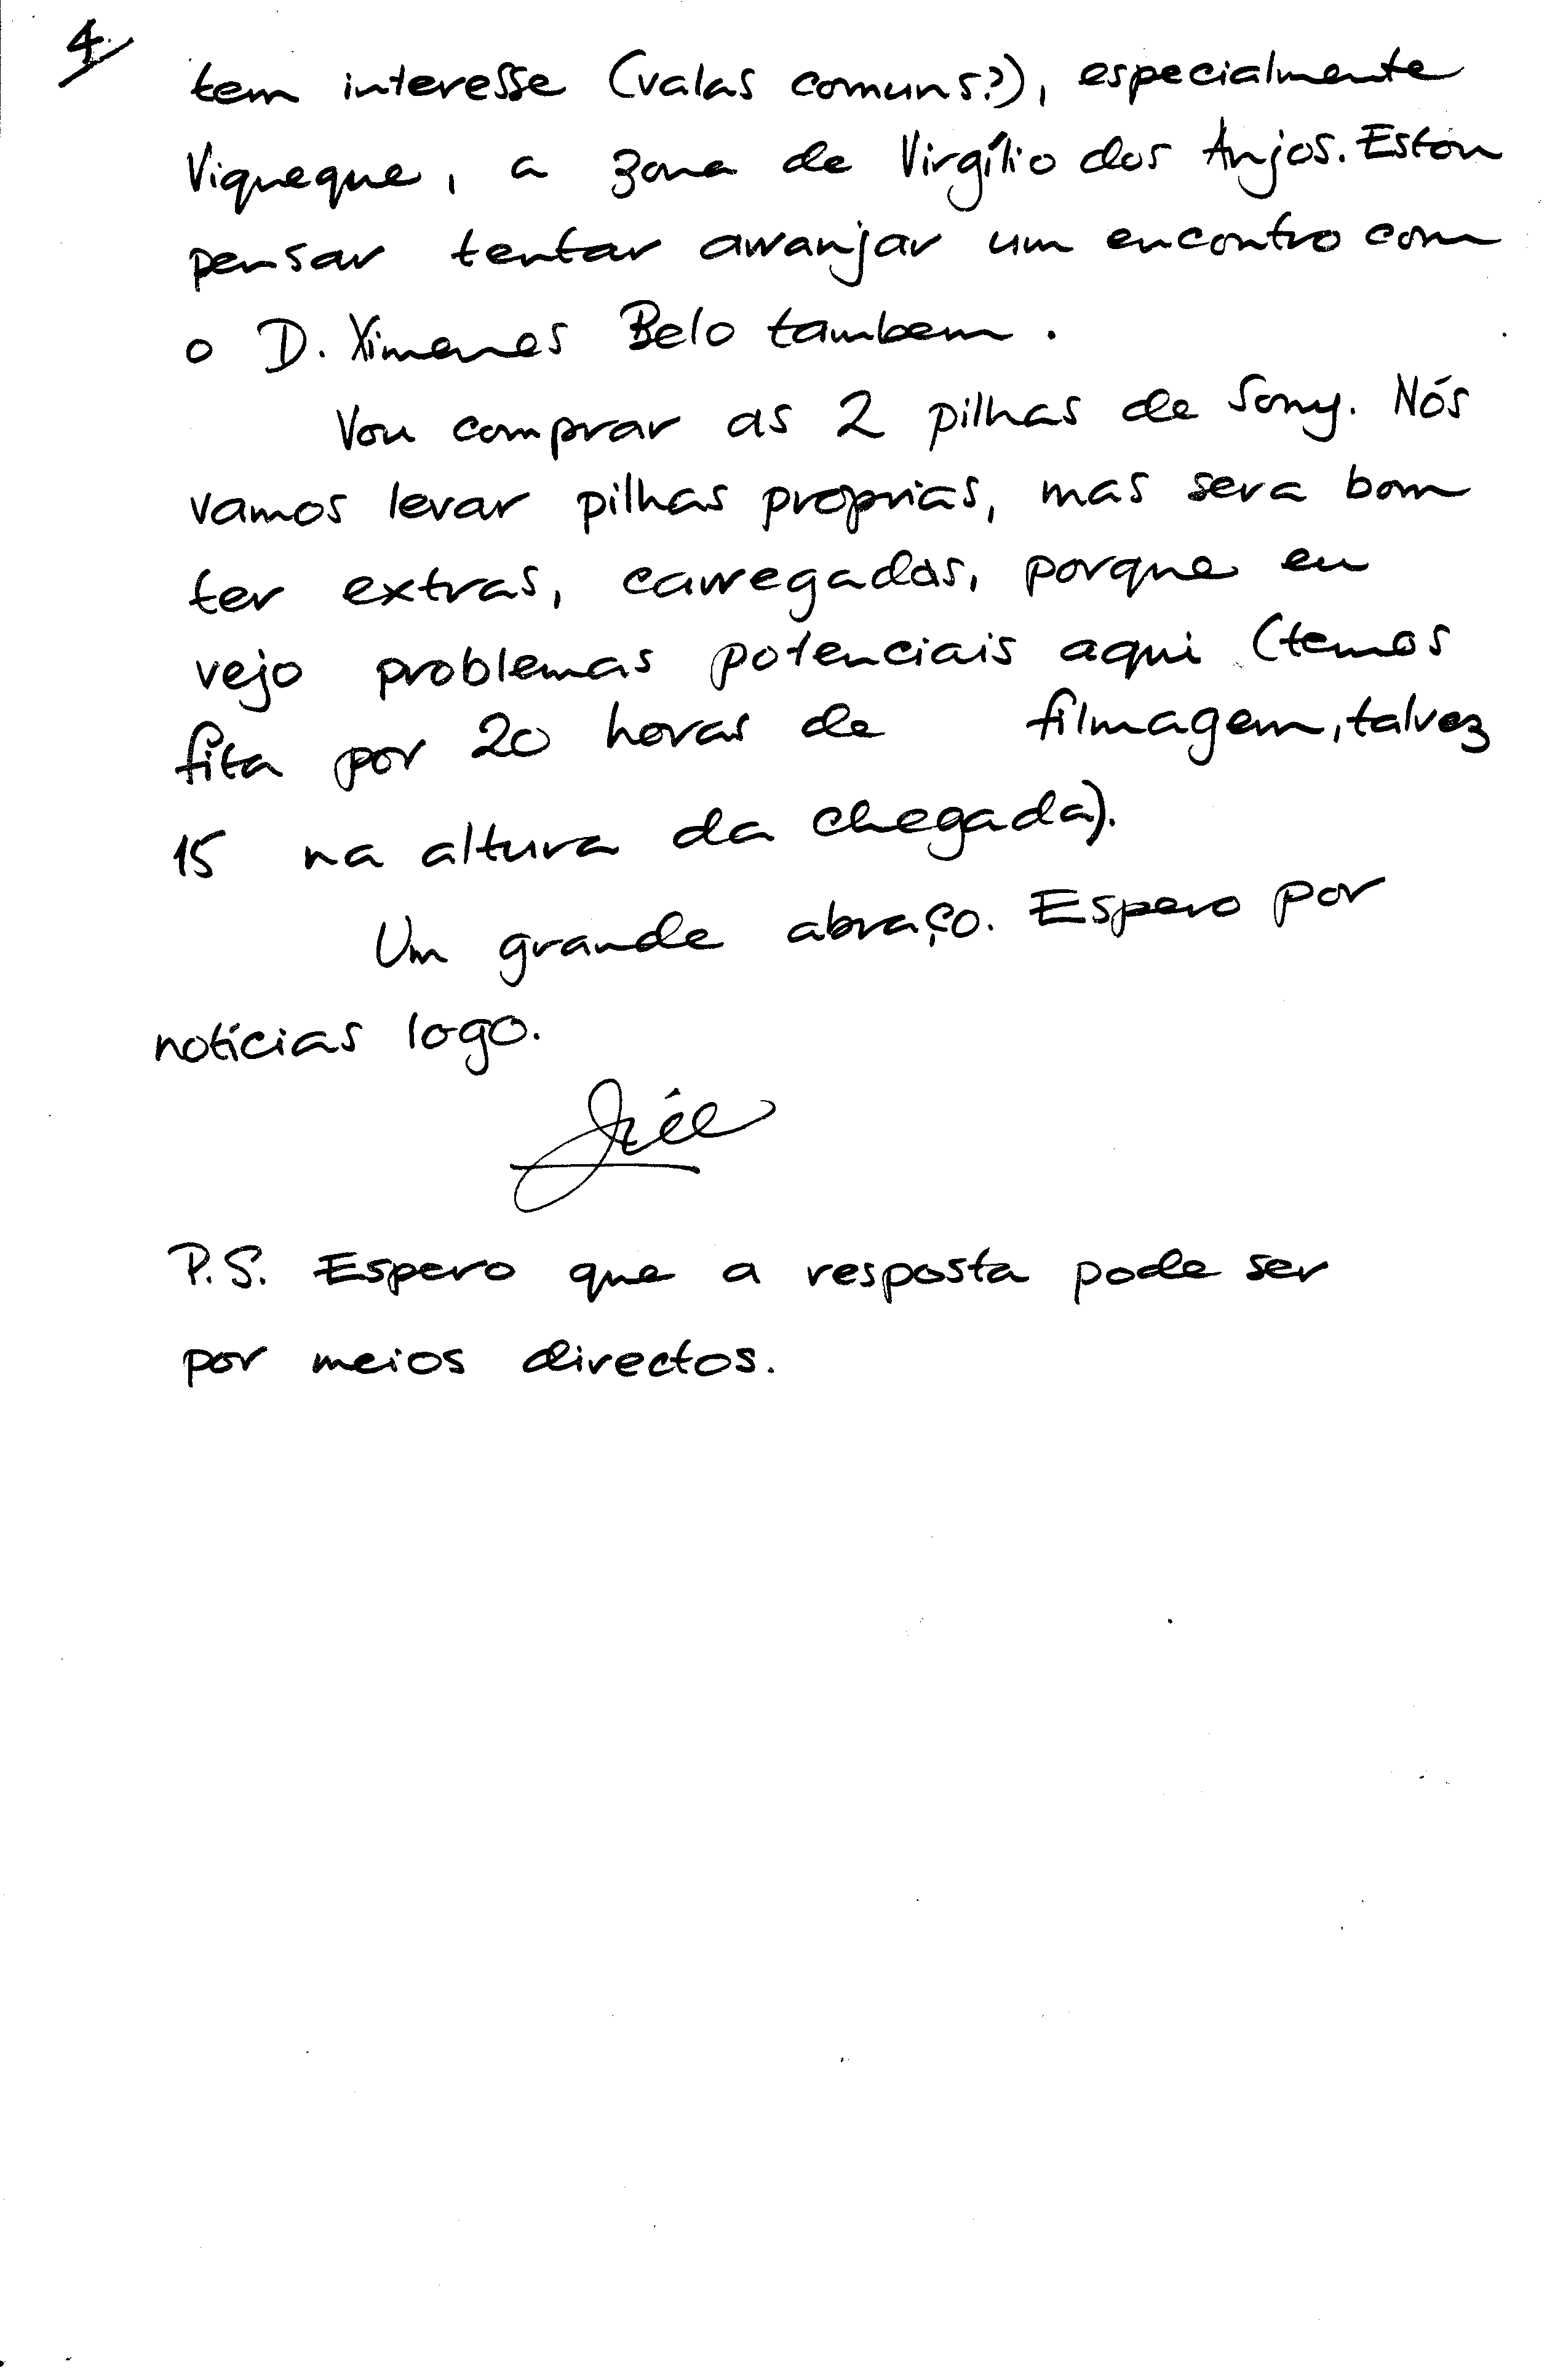 4
tem interesse (valas comuns?), especialmente
Viqueque, a zona de Virgílio dos Anjos. Estou
pensar tentar arranjar um encontro com
o D. Ximenes Belo tambem.
Vou comprar as 2 pilhas de Sony. Nós
vamos levar pilhas proprias, mas sera bom
ter extras, carregadas, porque eu
vejo problemas potenciais aqui (temos
fita por 20 horas de filmagem, talvez
15 na altura da chegada).
Um grande abraço. Espero por
notícias logo.
P.S. Espero que a resposta pode ser
por meios directos.